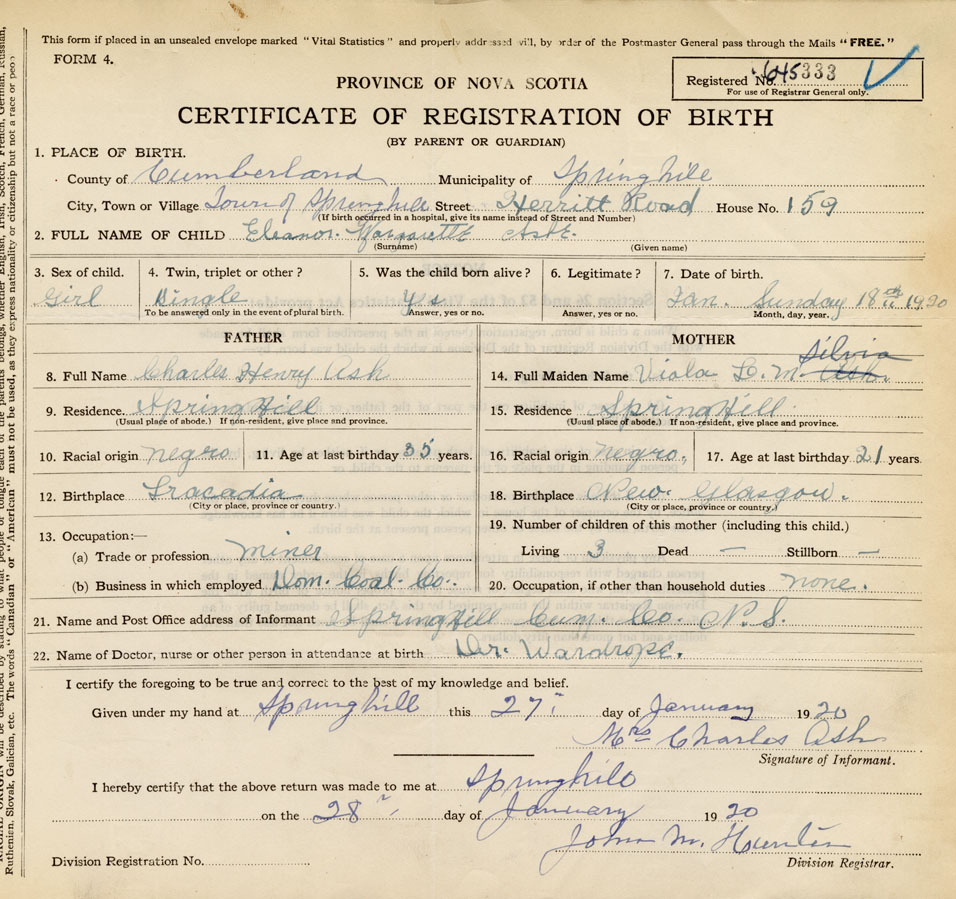 This form if placed in an unsealed envelope marked "Vital Statistics" and properly addressed will, by order of the Postmaster General pass through the Mails "FREE."
FORM 4.
Registered No. 645333
For use of Registrar General only.
PROVINCE OF NOVA SCOTIA
CERTIFICATE OF REGISTRATION OF BIRTH
(BY PARENT OR GUARDIAN)
1. PLACE OF BIRTH.
County of Cumberland Municipality of Springhill
City, Town or Village Town of Springhill Street Herritt Road House No. 159
(If birth occurred in a hospital, give its name instead of Street and Number)
2. FULL NAME OF CHILD Eleanor Margarette Ash.
(Surname) (Given name)
3. Sex of child. 4. Twin, triplet or other? 5. Was the child born alive? 6. Legitimate? 7. Date of birth.
Girl Single Yes Jan. Sunday 18th 1920
To be answered only in the event of plural birth. Answer, yes or no. Answer, yes or no. Month, day, year.
FATHER MOTHER
Silvia
8. Full Name Charles Henry Ash 14. Full Maiden Name Viola L. M. Ash.
9. Residence. SpringHill 15. Residence SpringHill
(Usual place of abode.) If non-resident, give place and province. (Usual place of abode.) If non-resident, give place and province.
10. Racial origin negro 11. Age at last birthday 35 years. 16. Racial origin negro, 17. Age at last birthday 21 years.
12. Birthplace Tracadia 18. Birthplace New Glasgow.
(City or place, province or country.) (City or place, province or country.)
19. Number of children of this mother (including this child.)
13. Occupation:—
(a) Trade or profession miner Living 3 Dead — Stillborn —
(b) Business in which employed Dom. Coal. Co. 20. Occupation, if other than household duties none.
21. Name and Post Office address of Informant SpringHill Cum. Co. N.S.
22. Name of Doctor, nurse or other person in attendance at birth Dr. Wardrope.
I certify the foregoing to be true and correct to the best of my knowledge and belief.
Given under my hand at Springhill this 27 day of January 1920
Mrs Charles Ash
Signature of Informant.
I hereby certify that the above return was made to me at Springhill
on the 28 day of January 1920
John M. Hunter
Division Registration No. Division Registrar.
Ruthenien, Slovak, Galician, etc. The words "Canadian" or "American" must not be used, as they express nationality or citizenship but not a race or people